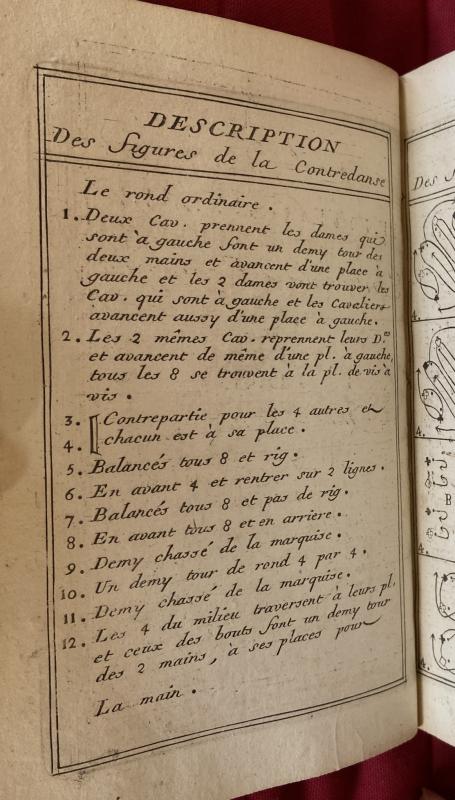 DESCRIPTION
Des figures de la Contredanse
Le rond ordinaire.
1. Deux Cav. prennent les dames qui
sont à gauche font un demy tour des
deux mains et avancent d'une place à
gauche et les 2 dames vont trouver les
Cav. qui sont à gauche et les Cavaliers
avancent aussy d'une place à gauche.
2. Les 2 mêmes Cav. reprennent leurs D.es
et avancent de même d'une pl. à gauche,
tous les 8 se trouvent à la pl. de vis à
vis.
3. Contrepartie pour les 4 autres et
4. chacun est à sa place.
5. Balancés tous 8 et rig.
6. En avant 4 et rentrer sur 2 lignes.
7. Balancés tous 8 et pas de rig.
8. En avant tous 8 et en arriere.
9. Demy chassé de la marquise.
10. Un demy tour de rond 4 par 4.
11. Demy chassé de la marquise.
12. Les 4 du milieu traversent à leurs pl.
et ceux des bouts font un demy tour
des 2 mains, à ses places pour
La main.
Des
4.
4.
B
4.
4.